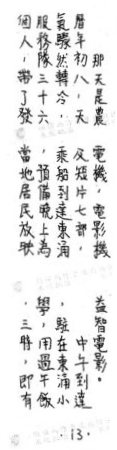 那天是農
曆年初八,天
氣驟然轉冷,
服務隊三十六
個人,帶了發
電機,電影機
及短片七部,
乘船到達東涌
,預備晚上為
當地居民放映
益智電影。
中午到達
,駐在東涌小
學,用過午飯
,三時,即有
·13·